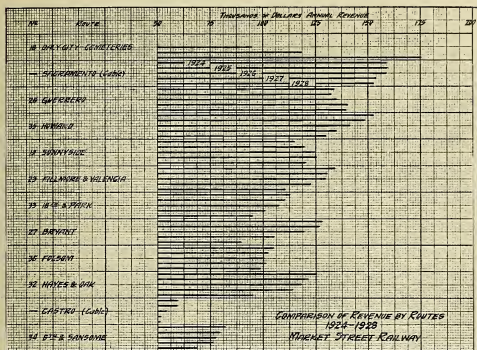 No. ROUTE
THOUSANDS OF DOLLARS ANNUAL REVENUE
50 75 100 125 150 175 200
DALY CITY CEMETERIES
1924
1925
1926
1927
1928
— SACRAMENTO (Cable)
26 GUERRERO
35 HOWARD
SUNNYSIDE
23 FILLMORE & VALENCIA
33 18TH & PARK
27 BRYANT
36 FOLSOM
32 HAYES & OAK
— CASTRO (Cable)
34 6TH & SANSOME
COMPARISON OF REVENUE BY ROUTES
1924-1928
MARKET STREET RAILWAY